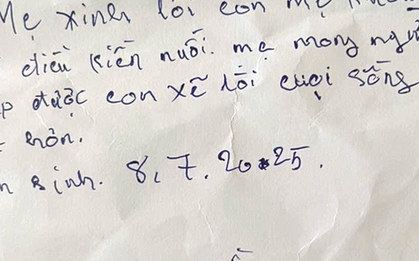 Mẹ xinh lỗi con mẹ
điều kiên nuôi. mẹ mong ngư
p được con xẽ lội cuọi sống
hơn.
n sinh. 8.7.2025.